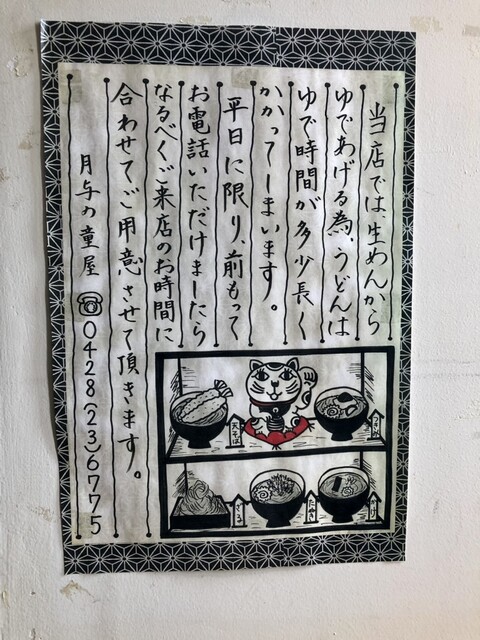 当店では、生めんから
ゆであげる為、うどんは
ゆで時間が多少長く
かかってしまいます。
平日に限り、前もって
お電話いただけましたら
なるべくご来店のお時間に
合わせてご用意させて頂きます。
月与の童屋 ☎0428(23)6775
天そば
ざる
たぬき